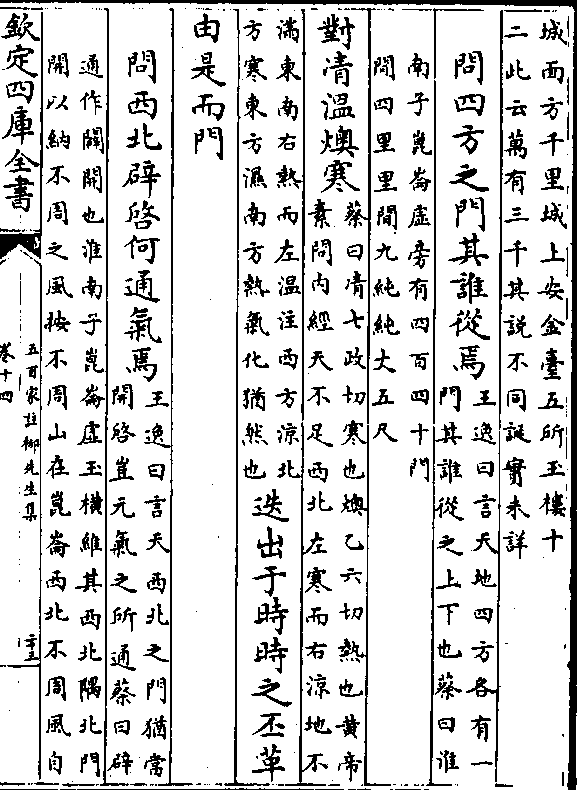 城面方千里城上安金臺五所玉樓十
二此云萬有三千其說不同誕實未詳
問四方之門其誰從焉王逸曰言天地四方各有一
門其誰從之上下也蔡曰淮
南子崑崙虛旁有四百四十門
間四里里間九純純丈五尺
對凊溫燠寒蔡曰凊七政切寒也燠乙六切熱也黃帝
素問內經天不足西北左寒而右涼地不
滿東南右熱而左溫注西方涼北
方寒東方濕南方熱氣化猶然也迭出于時時之丕革
由是而門
問西北辟啓何通氣焉王逸曰言天西北之門猶常
開啓豈元氣之所通蔡曰辟
通作闢開也淮南子崑崙虛玉橫維其西北隅北門
開以納不周之風按不周山在崑崙西北不周風自
欽定四庫全書
五百家註柳先生集
卷十四
二十三